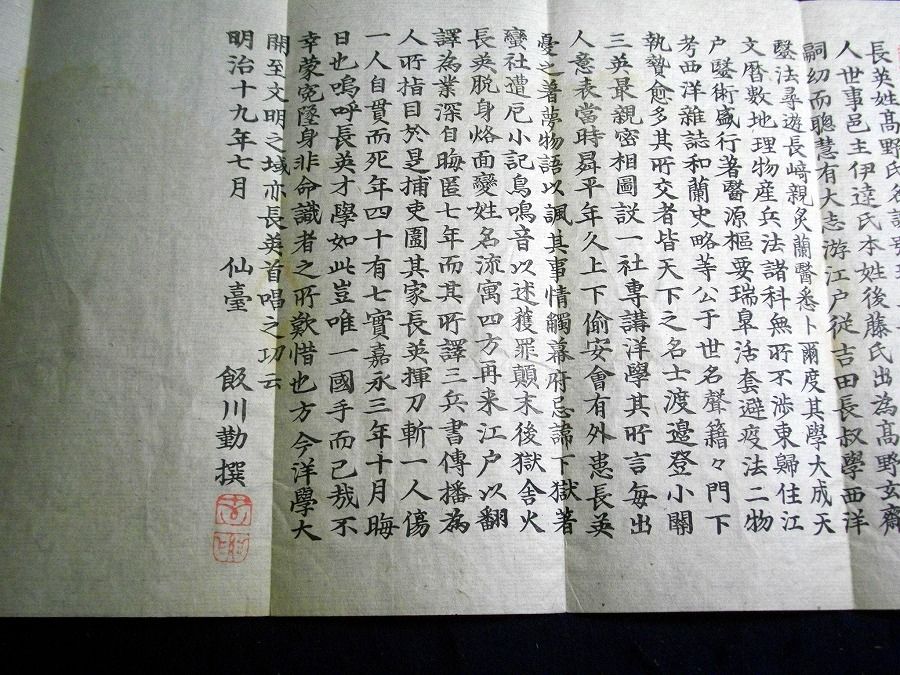 長英姓髙野氏名譲号瑞皐
人世事邑主伊達氏本姓後藤氏出為髙野玄齋
嗣幼而聰慧有大志游江戸從吉田長叔學西洋
毉法尋遊長﨑親炙蘭醫悉卜爾度其學大成天
文曆數地理物産兵法諸科無所不渉東歸住江
户毉術盛行著醫源樞要瑞皐活套避疫法二物
考西洋雜誌和蘭史略等公于世名聲籍々門下
執贄愈多其所交者皆天下之名士渡邉登小關
三英最親密相圖設一社專講洋學其所言每出
人意表當時昇平年久上下偷安會有外患長英
憂之著夢物語以諷其事情觸幕府忌諱下獄著
蠻社遭厄小記鳥鳴音以述獲罪顛末後獄舍火
長英脱身烙面變姓名流寓四方再来江户以翻
譯為業深自晦匿七年而其所譯三兵書傳播為
人所指目於是捕吏圍其家長英揮刀斬一人傷
一人自貫而死年四十有七實嘉永三年十月晦
日也嗚呼長英才學如此豈唯一國手而已哉不
幸蒙寃墜身非命識者之所歎惜也方今洋學大
開至文明之域亦長英首唱之功云
明治十九年七月　仙臺　飯川勤撰